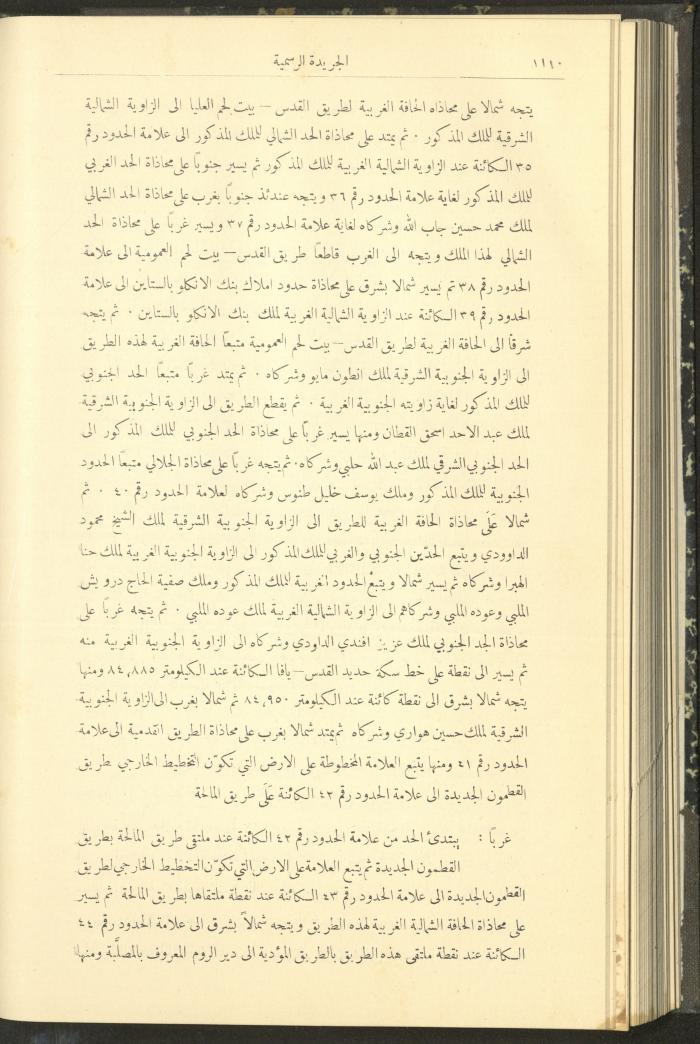 ١١١٠
الجريدة الرسمية
يتجه شمالا على محاذاه الحافة الغربية لطريق القدس – بيت لحم العليا الى الزاوية الشمالية
الشرقية للملك المذكور ٠ ثم يمتد على محاذاة الحد الشمالي للملك المذكور الى علامة الحدود رقم
٣٥ الكائنة عند الزاوية الشمالية الغربية للملك المذكور ثم يسير جنوباً على محاذاة الحد الغربي
للملك المذكور لغاية علامة الحدود رقم ٣٦ ويتجه عندئذ جنوباً بغرب على محاذاة الحد الشمالي
لملك محمد حسين جاب الله وشركاه لغاية علامة الحدود رقم ٣٧ ويسير غرباً على محاذاة الحد
الشمالي لهذا الملك ويتجه الى الغرب قاطعاً طريق القدس – بيت لحم العمومية الى علامة
الحدود رقم ٣٨ ثم يسير شمالا بشرق على محاذاة حدود املاك بنك الانكلو بالستاين الى علامة
الحدود رقم ٣٩ الكائنة عند الزاوية الشمالية الغربية لملك بنك الانكلو بالستاين ٠ ثم يتجه
شرقاً الى الحافة الغربية لطريق القدس – بيت لحم العمومية متبعاً الحافة الغربية لهذه الطريق
الى الزاوية الجنوبية الشرقية لملك انطون مايو وشركاه ٠ ثم يمتد غرباً متبعاً الحد الجنوبي
للملك المذكور لغاية زاويته الجنوبية الغربية ٠ ثم يقطع الطريق الى الزاوية الجنوبية الشرقية
لملك عبد الاحد اسحق القطان ومنها يسير غرباً على محاذاة الحد الجنوبي للملك المذكور الى
الحد الجنوبي الشرقي لملك عبد الله حلبي وشركاه ٠ ثم يتجه غرباً على محاذاة الجلالي متبعاً الحدود
الجنوبية للملك المذكور وملك يوسف خليل طنوس وشركاه لعلامة الحدود رقم ٤٠ ٠ ثم
شمالا عَلَى محاذاة الحافة الغربية للطريق الى الزاوية الجنوبية الشرقية لملك الشيخ محمود
الداوودي ويتبع الحدّين الجنوبي والغربي للملك المذكور الى الزاوية الجنوبية الغربية لملك حنا
الهبرا وشركاه ثم يسير شمالا ويتبعُ الحدود الغربية للملك المذكور وملك صفية الحاج درويش
الملبي وعوده الملبي وشركاهم الى الزاوية الشمالية الغربية لملك عوده الملبي ٠ ثم يتجه غرباً على
محاذاة الجد الجنوبي لملك عزيز افندي الداودي وشركاه الى الزاوية الجنوبية الغربية منه
ثم يسير الى نقطة على خط سكة حديد القدس – يافا الكائنة عند الكيلومتر ٨٤,٨٨٥ ومنها
يتجه شمالا بشرق الى نقطة كائنة عند الكيلومتر ٨٤,٩٥٠ ثم شمالا بغرب الى الزاوية الجنوبية
الشرقية لملك حسين هواري وشركاه ثم يمتد شمالا بغرب على محاذاة الطريق القدمية الى علامة
الحدود رقم ٤١ ومنها يتبع العلامة المخطوطة على الارض التي تكوّن التخطيط الخارجي طريق
القطمون الجديدة الى علامة الحدود رقم ٤٢ الكائنة عَلَى طريق المالحة
غرباً : يبتدئ الحد من علامة الحدود رقم ٤٢ الكائنة عند ملتقى طريق المالحة بطريق
القطمون الجديدة ثم يتبع العلامة على الارض التي تكوّن التخطيط الخارجي لطريق
القطمون الجديدة الى علامة الحدود رقم ٤٣ الكائنة عند نقطة ملتقاها بطريق المالحة ثم يسير
على محاذاة الحافة الشمالية الغربية لهذه الطريق ويتجه شمالاً بشرق الى علامة الحدود رقم ٤٤
الكائنة عند نقطة ملتقى هذه الطريق بالطريق المؤدية الى دير الروم المعروف بالمصلَّبة ومنها